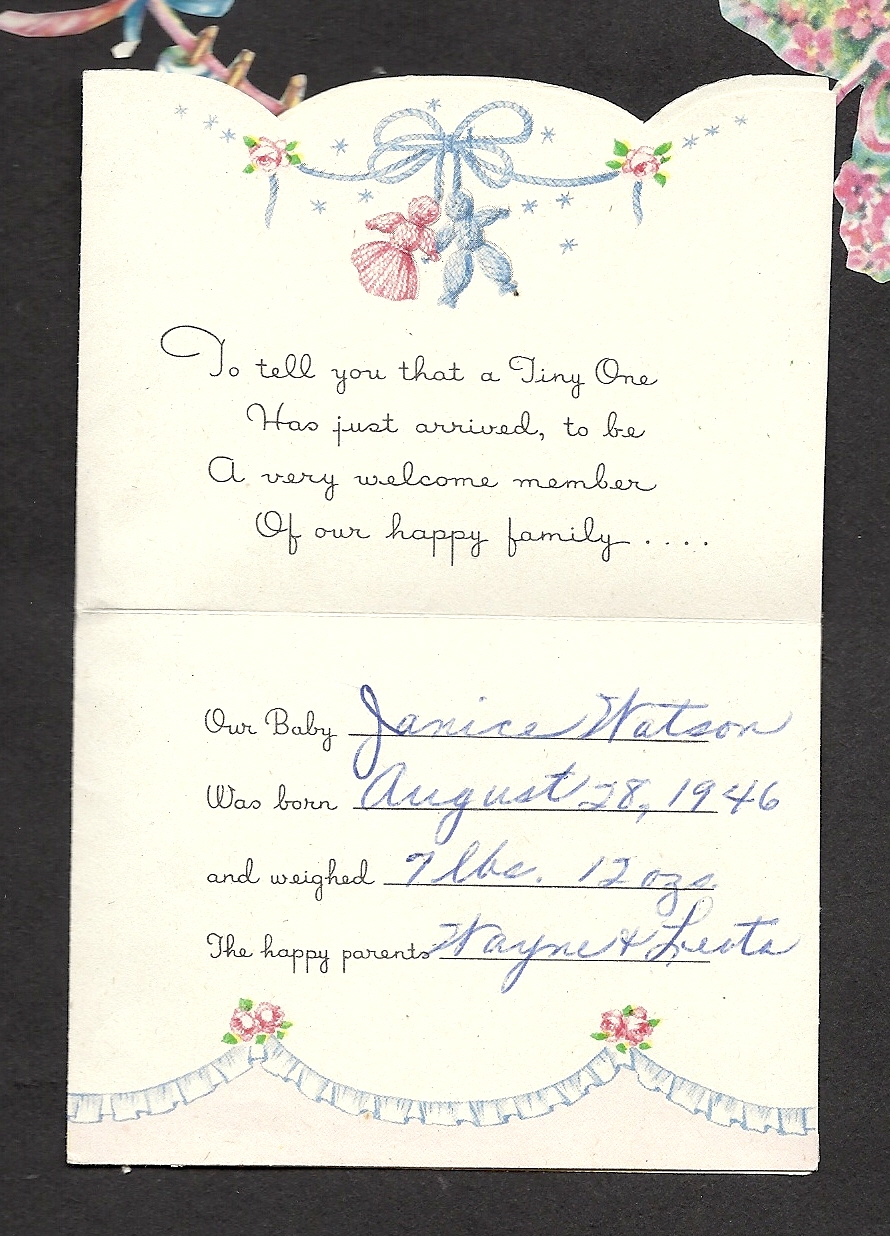 To tell you that a Tiny One
Has just arrived, to be
A very welcome member
Of our happy family....
Our Baby Janice Watson
Was born August 28, 1946
and weighed 7 lbs. 12 ozs.
The happy parents Wayne & Leota